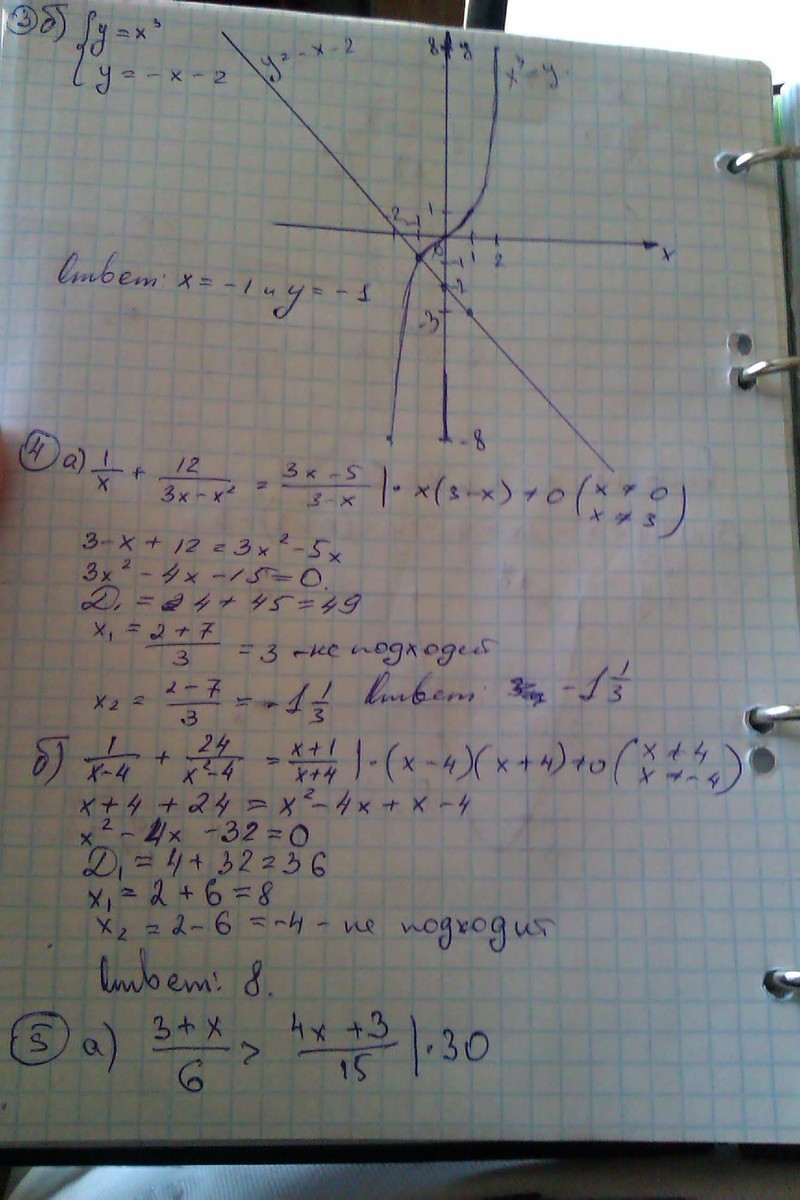 ③ б) { y = x³
y = -x - 2
y = -x - 2
8 y
x³ = y
-2 -1 0 1 2 x
1
-1
-2
-3
-8
Ответ: x = -1 и y = -1
④ а) 1/x + 12/(3x-x²) = (3x-5)/(3-x) | · x(3-x) ≠ 0 (x ≠ 0
x ≠ 3)
3-x+12 = 3x²-5x
3x² - 4x - 15 = 0.
D₁ = 4 + 45 = 49
x₁ = (2+7)/3 = 3 - не подходит
x₂ = (2-7)/3 = -1 1/3 Ответ: -1 1/3
б) 1/(x-4) + 24/(x²-4) = (x+1)/(x+4) | · (x-4)(x+4) ≠ 0 (x ≠ 4
x ≠ -4)
x+4+24 = x²-4x+x-4
x² - 4x - 32 = 0
D₁ = 4 + 32 = 36
x₁ = 2 + 6 = 8
x₂ = 2 - 6 = -4 - не подходит
Ответ: 8.
⑤ а) (3+x)/6 > (4x+3)/15 | · 30